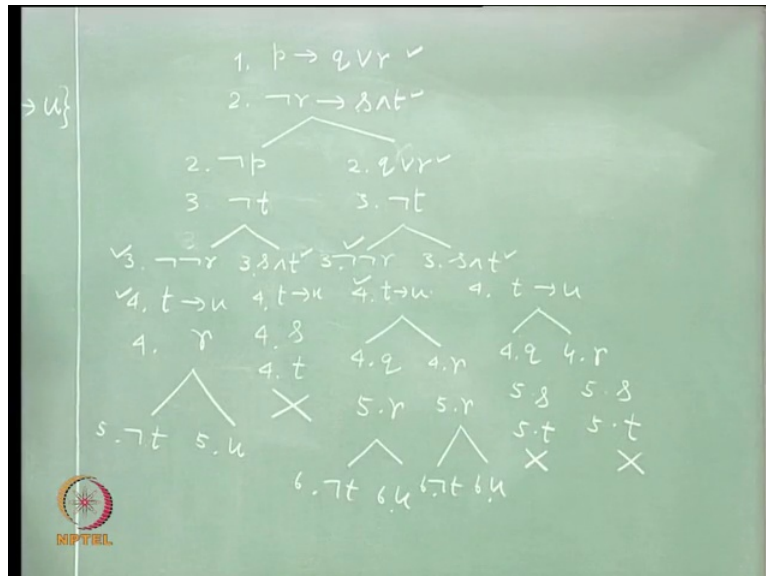 1. p → q ∨ r ✓
→ u}
2. ¬r → s ∧ t ✓
2. ¬p 2. q ∨ r ✓
3 ¬t 3. ¬t
✓3. ¬¬r 3. s ∧ t ✓ 3. ¬¬r ✓ 3. s ∧ t ✓
✓4. t → u 4. t → u ✓4. t → u. 4. t → u
4. r 4. s 4. q 4. r 4. q 4. r
4. t 5. r 5. r 5. s 5. s
5. ¬t 5. u × 5. t 5. t
6. ¬t 6. u 6. ¬t 6. u × ×
NPTEL